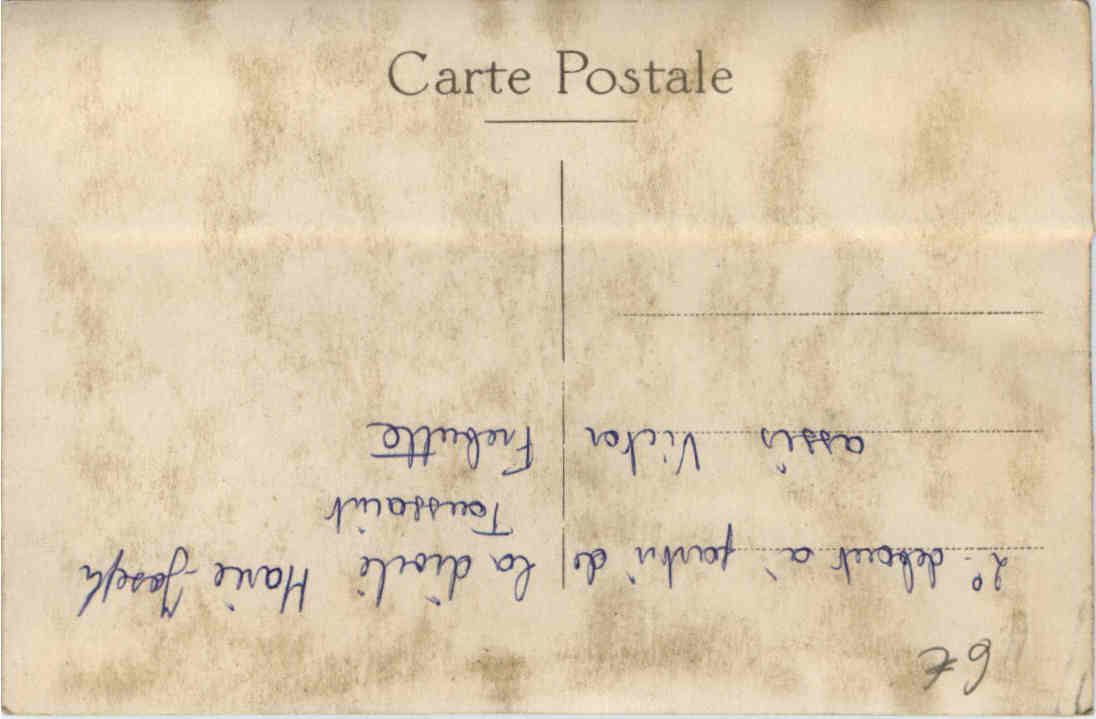 Carte Postale
6€
2e debout à partir de la droite Marie-Joseph
Toussaint
assis Victor Frebutte